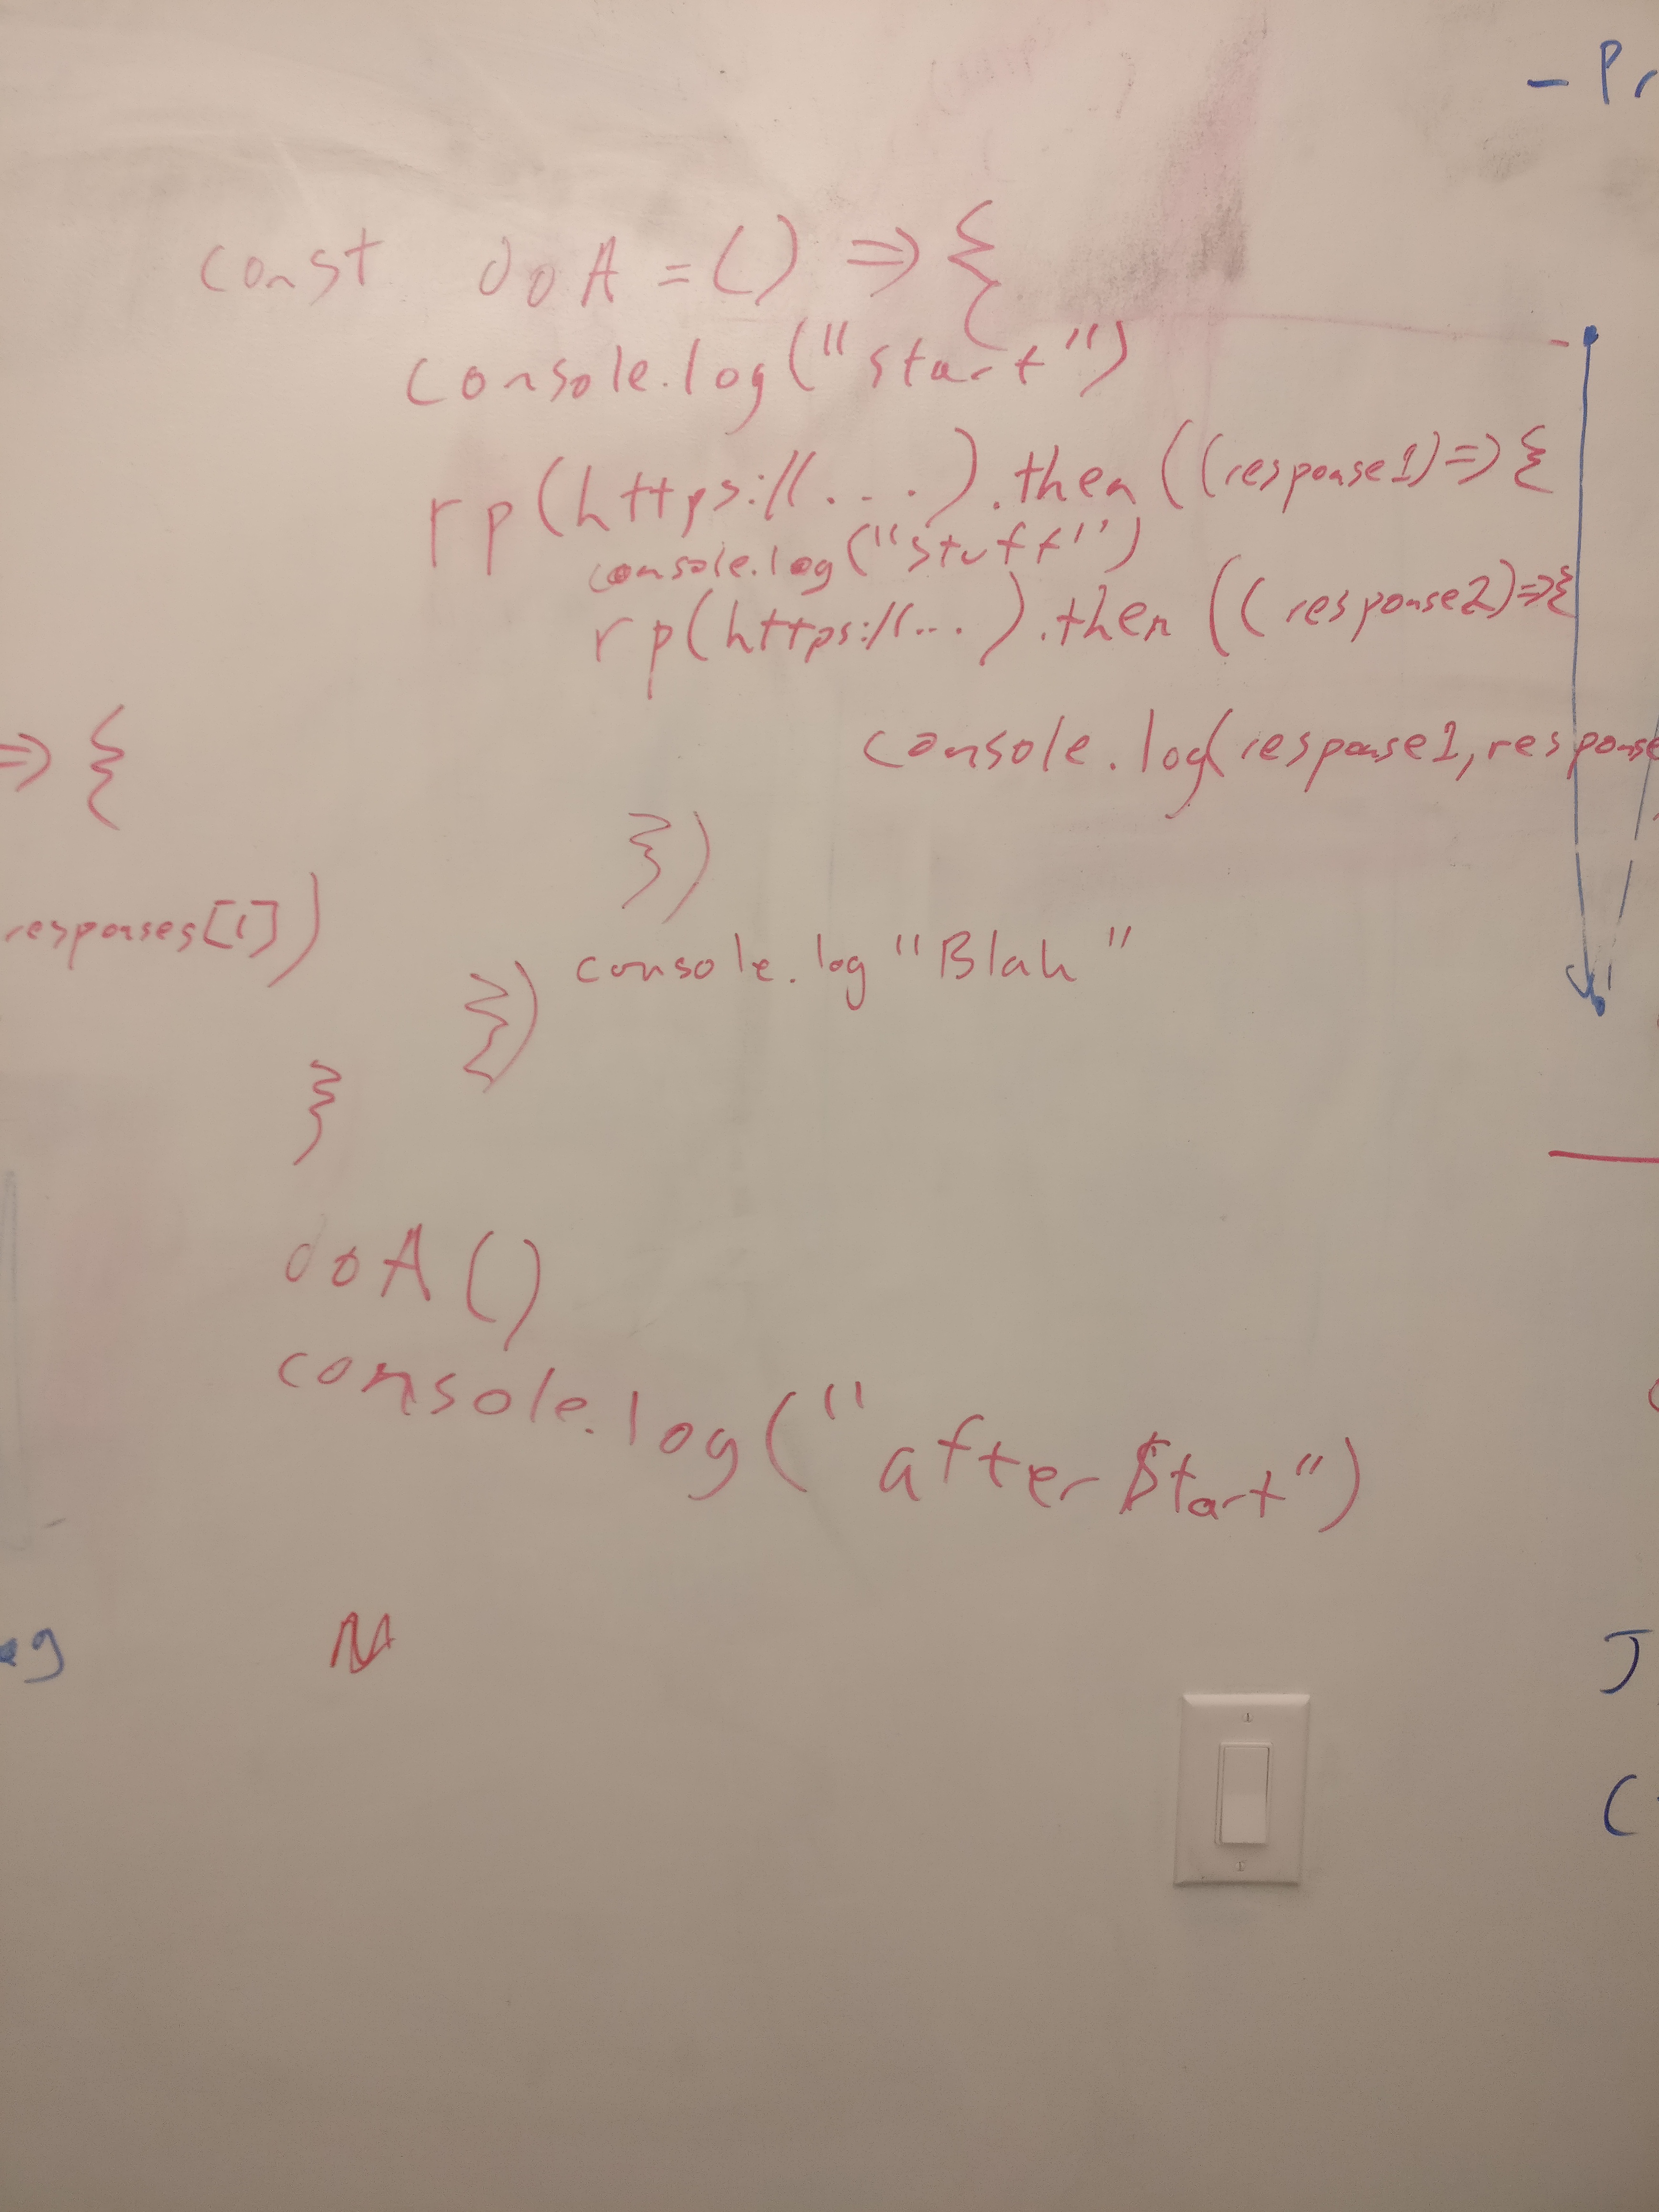 - Pr
const doA = () => {
console.log("start")
rp(https://....).then((response1) => {
console.log("stuff")
rp(https://...).then((response2) => {
=> {
console.log(response1, response
})
responses[1])
console.log "Blah"
})
}
doA()
console.log("after Start")
J
(